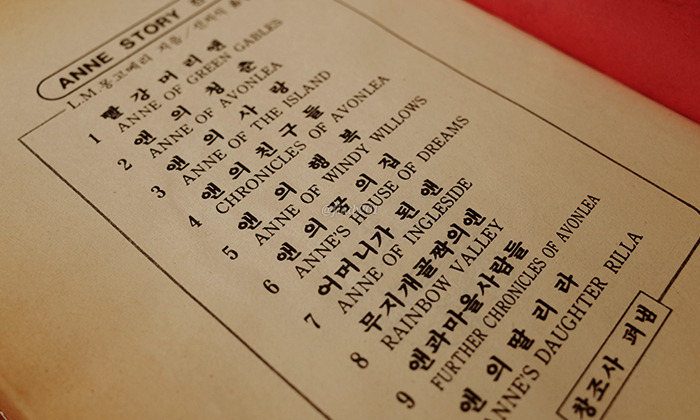 ANNE STORY
L.M.몽고메리 지음/
빨강머리앤
1 ANNE OF GREEN GABLES
앤의청춘
2 ANNE OF AVONLEA
앤의사랑
3 ANNE OF THE ISLAND
앤의친구들
4 CHRONICLES OF AVONLEA
앤의행복
5 ANNE OF WINDY WILLOWS
앤의꿈의집
6 ANNE'S HOUSE OF DREAMS
어머니가된앤
7 ANNE OF INGLESIDE
무지개골짜의앤
8 RAINBOW VALLEY
앤과마을사람들
9 FURTHER CHRONICLES OF AVONLEA
앤의딸리라
ANNE'S DAUGHTER RILLA
창조사 펴냄